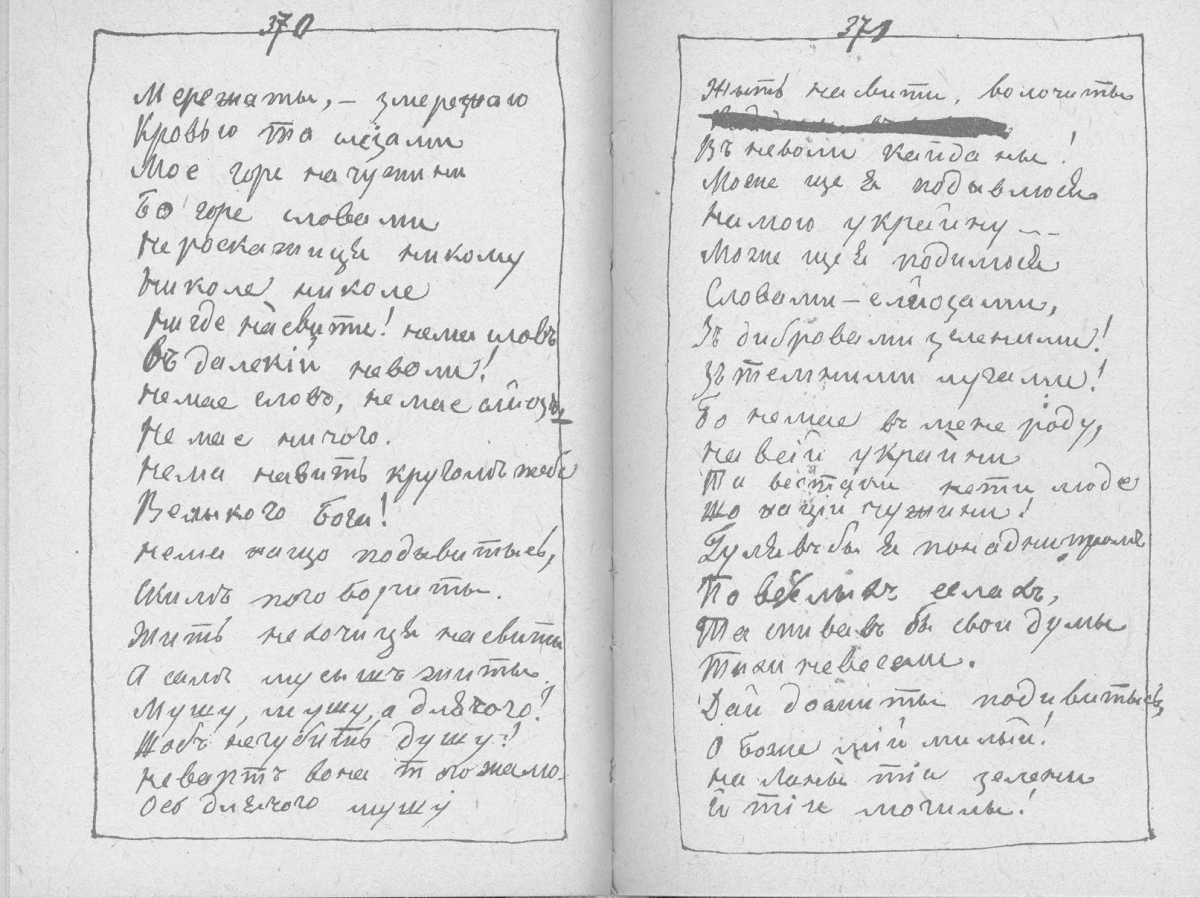 370
Мережаты, – змережаю
Кровъю та слёзами
Мое горе на чужини
Бо горе словами
Не роскажиця никому
Николе николе
Нигде на свити! нема словъ
Въ далекій неволи!
Немае словъ, немае слйозъ,
Немае ничого.
Нема навить кругомъ тебе
Велыкого Бога!
Нема на що подывитысь,
Скимъ поговорить.
Жить не хочиця на свити
А самъ мусышъ житы.
Мушу, мушу, а для чого!
Щобъ не губить душу?
Не вартъ вона того жалю.
Ось для чого мушу
371
Жыть на свити, волочиты
Въ неволи кайданы!
Може ще я подывлюся
На мою украйну...
Може ще я подилюся
Словами – слйозами,
Зъ дибровами зелеными!
Зъ темними лугами!
Бо немае въ мене роду,
На всій украйни
Та все таки не ти люде
Що на цій чужини!
Гулявъ бы я понад Днипромъ
По веселыхъ селахъ,
Та спивавъ бы свои думы
Тихи невесели.
Дай дожиты подивитысь,
О Боже мій милый!
На ланы тіи зелени
Й тіи могилы!